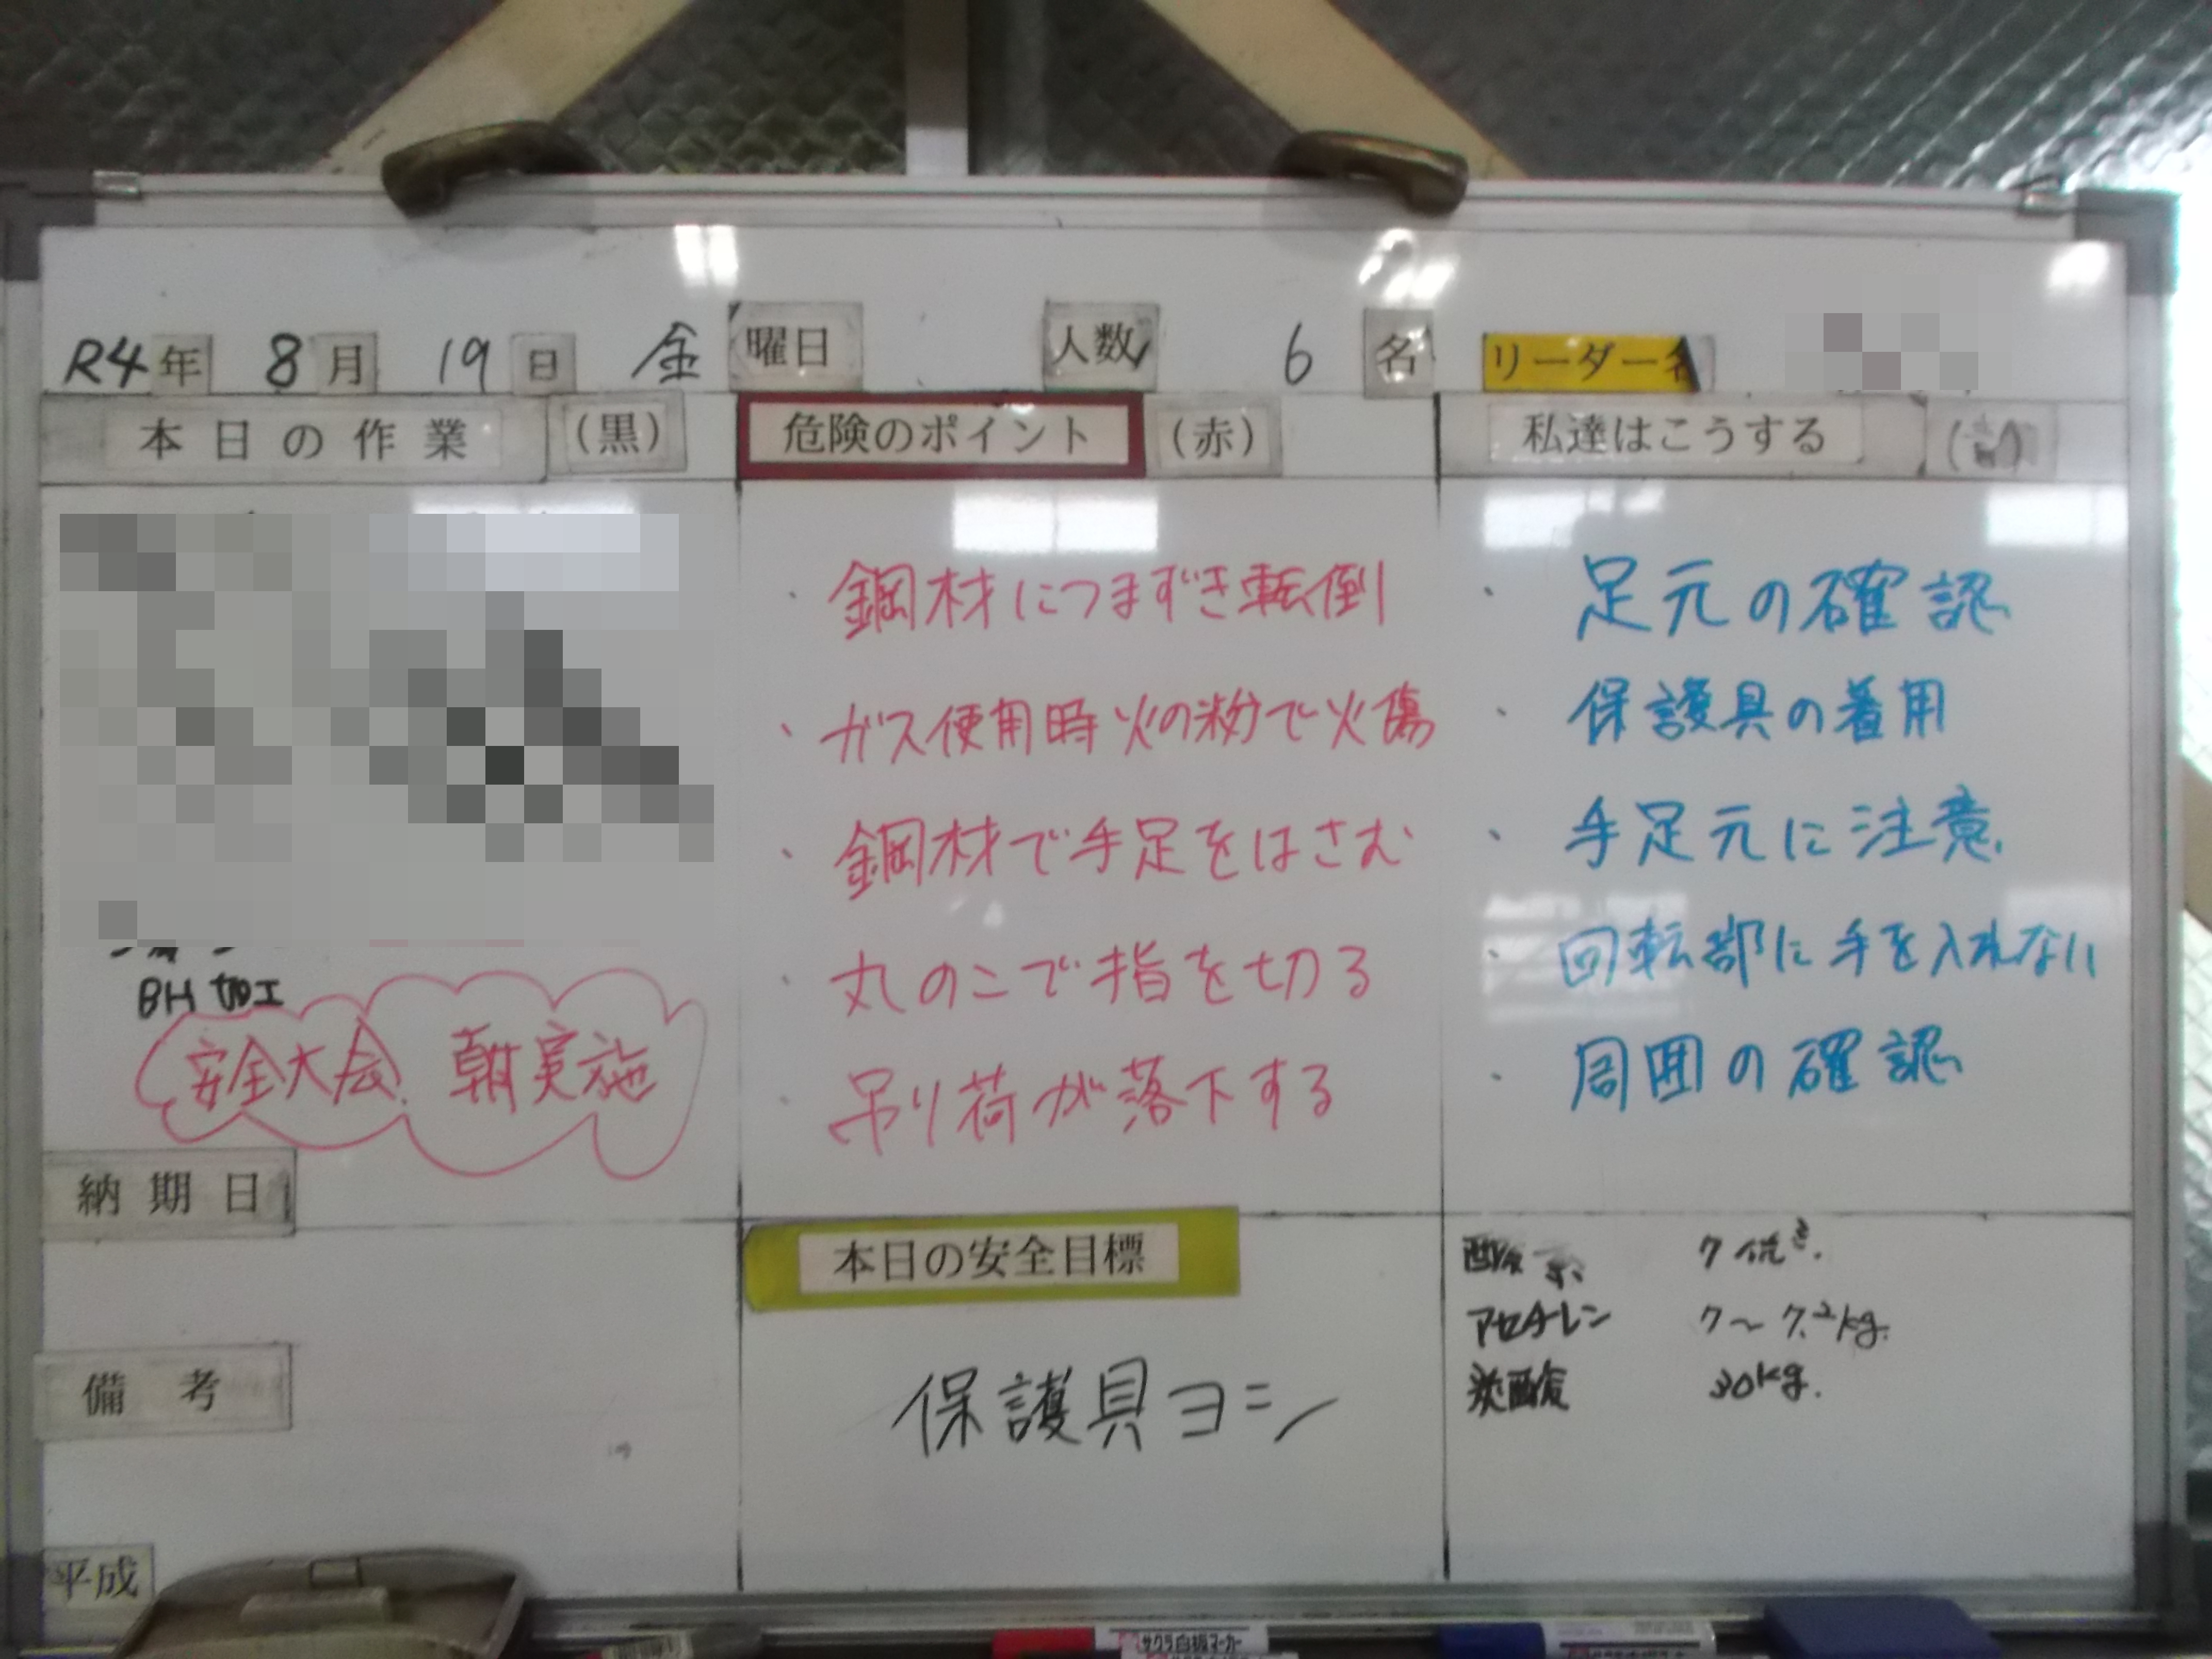 R4年 8月 19日 金曜日 人数 6名 リーダー名
本日の作業 (黒)
BH加工
安全大会 朝実施
納期日
備考
平成
危険のポイント (赤)
・鋼材につまずき転倒
・ガス使用時火の粉で火傷
・鋼材で手足をはさむ
・丸のこで指を切る
・吊り荷が落下する
本日の安全目標
保護具ヨシ
私達はこうする
・足元の確認
・保護具の着用
・手足元に注意
・回転部に手を入れない
・周囲の確認
酸素 7
アセチレン 7〜7.2kg.
炭酸 30kg.
サクラ白板マーカー